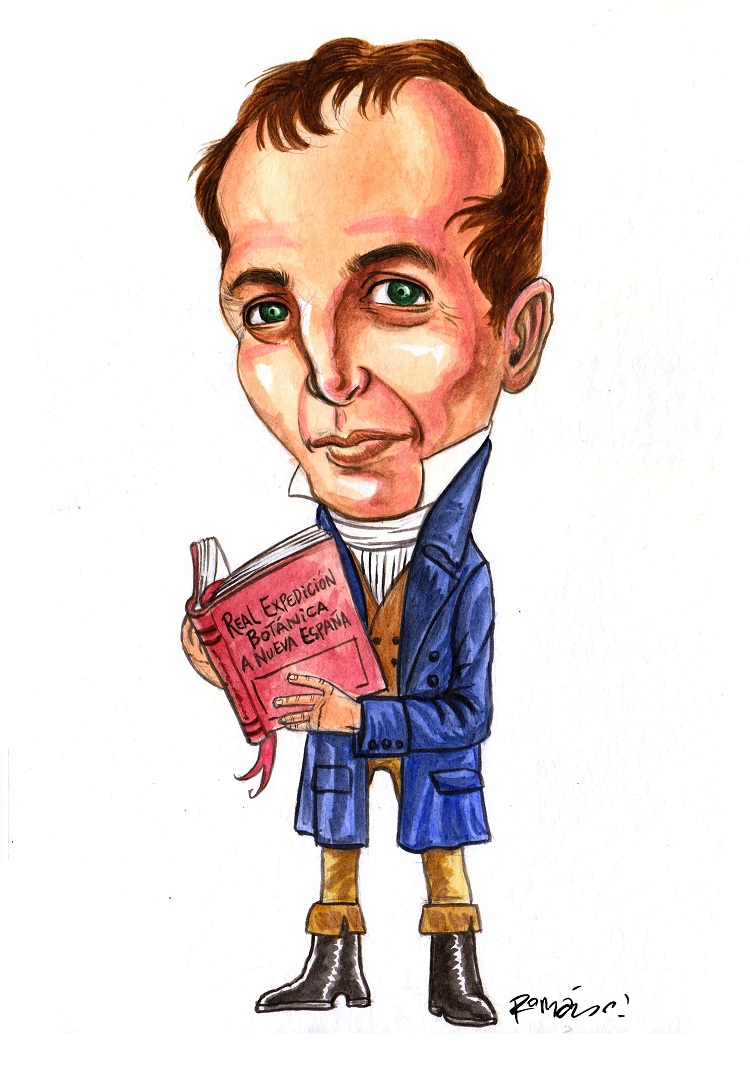 REAL EXPEDICIÓN
BOTÁNICA
A NUEVA ESPAÑA